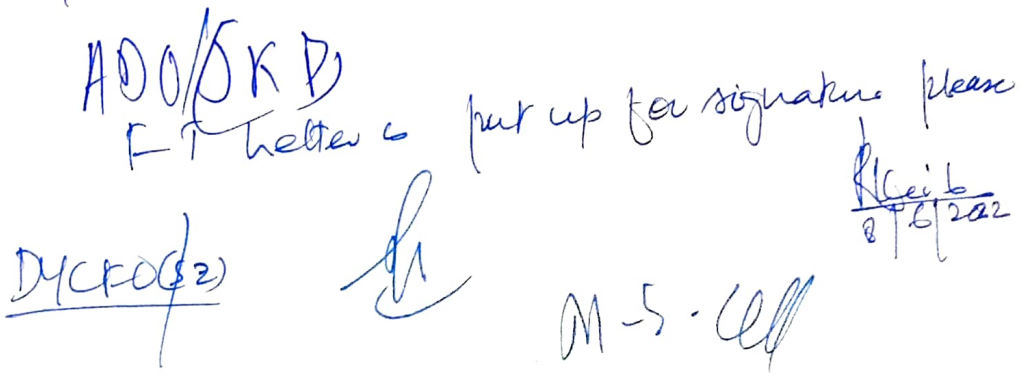 ADO/SKD
FT Letter is put up for signature please
8/6/2022
DYCFO(S2)
M-S-Cell